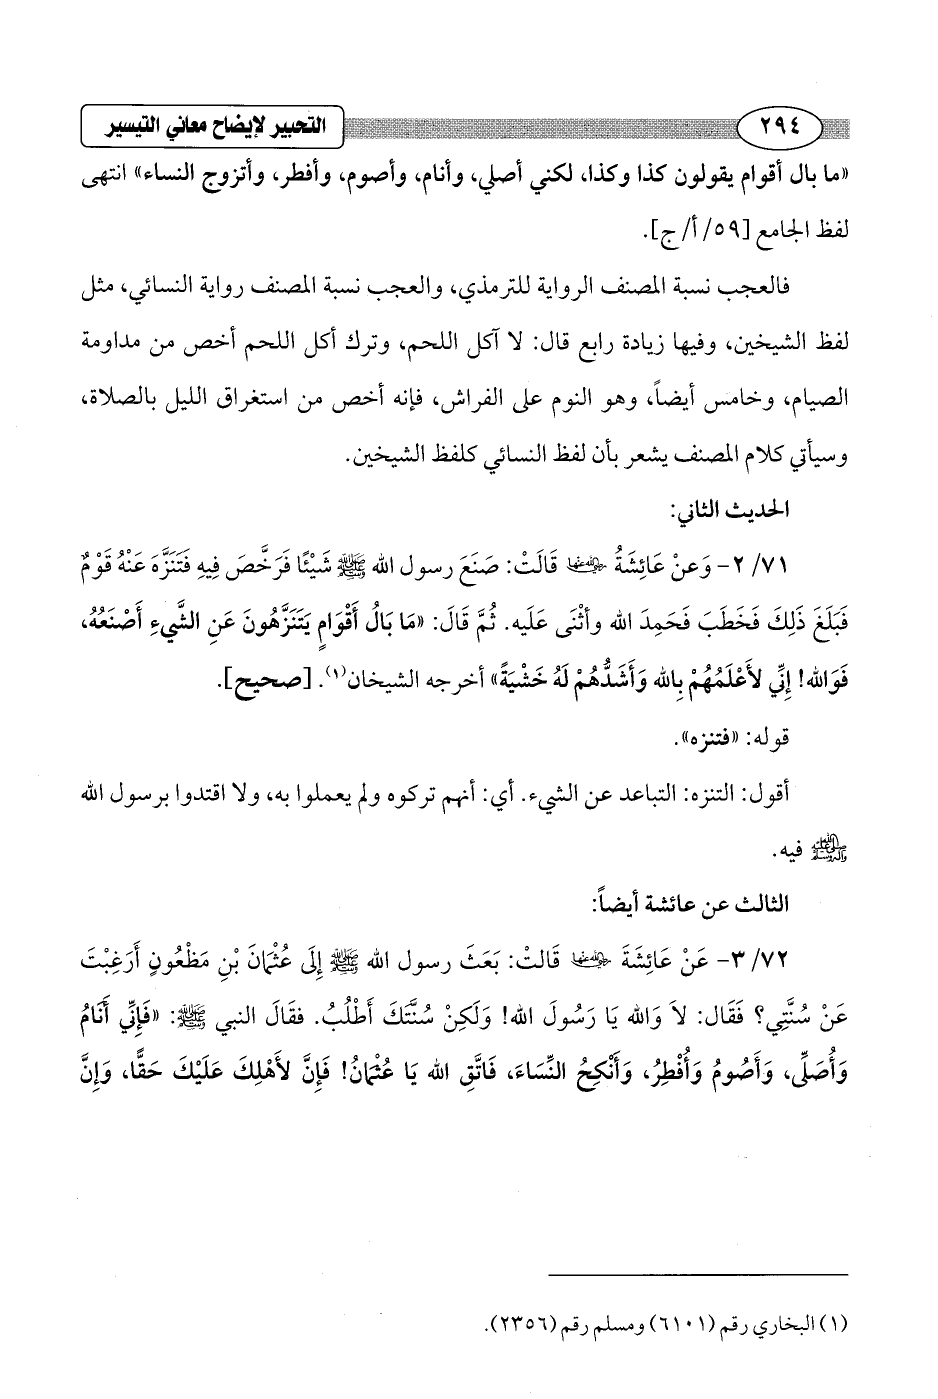 التحبير لإيضاح معاني التيسير
٢٩٤
«ما بال أقوام يقولون كذا وكذا، لكني أصلي، وأنام، وأصوم، وأفطر، وأتزوج النساء» انتهى
لفظ الجامع [٥٩/ أ/ ج].
فالعجب نسبة المصنف الرواية للترمذي، والعجب نسبة المصنف رواية النسائي، مثل
لفظ الشيخين، وفيها زيادة رابع قال: لا آكل اللحم، وترك أكل اللحم أخص من مداومة
الصيام، وخامس أيضاً، وهو النوم على الفراش، فإنه أخص من استغراق الليل بالصلاة،
وسيأتي كلام المصنف يشعر بأن لفظ النسائي كلفظ الشيخين.
الحديث الثاني:
٧١/ ٢- وَعنْ عَائِشَةُ رضي الله عنها قَالَتْ: صَنَعَ رسول الله ﷺ شَيْئًا فَرَخَّصَ فِيهِ فَتَنَزَّهَ عَنْهُ قَوْمٌ
فَبَلَغَ ذَلِكَ فَخَطَبَ فَحَمِدَ الله وأثْنَى عَلَيه. ثُمَّ قَالَ: «مَا بَالُ أَقْوَامٍ يَتَنَزَّهُونَ عَنِ الشَّيءِ أَصْنَعُهُ،
فَوَالله! إِنِّي لأَعْلَمُهُمْ بِالله وَأَشَدُّهُمْ لَهُ خَشْيَةً» أخرجه الشيخان(١). [صحيح].
قوله: «فتنزه».
أقول: التنزه: التباعد عن الشيء. أي: أنهم تركوه ولم يعملوا به، ولا اقتدوا برسول الله
ﷺ فيه.
الثالث عن عائشة أيضاً:
٧٢/ ٣- عَنْ عَائِشَةَ رضي الله عنها قَالتْ: بَعَثَ رسول الله ﷺ إِلَى عُثْمَانَ بْنِ مَظْعُونٍ أَرَغِبْتَ
عَنْ سُنَّتِي؟ فَقَال: لاَ وَالله يَا رَسُولَ الله! وَلَكِنْ سُنَّتَكَ أَطْلُبُ. فقَالَ النبي ﷺ: «فَإِنِّي أَنَامُ
وَأُصَلِّى، وَأَصُومُ وَأُفْطِرُ، وَأَنْكِحُ النِّسَاءَ، فَاتَّقِ الله يَا عُثْمَانُ! فَإِنَّ لأَهْلِكَ عَلَيْكَ حَقًّا، وَإِنَّ
(١) البخاري رقم (٦١٠١) ومسلم رقم (٢٣٥٦).